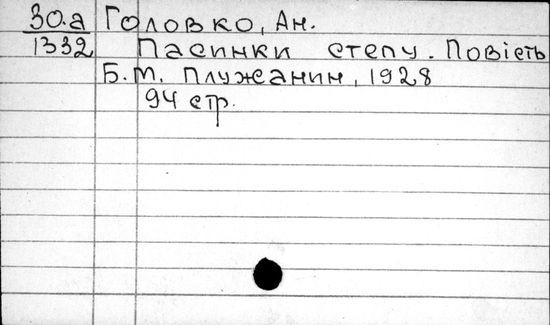 30.а Головко, Ан.
1332 Пасинки степу. Повість
Б. М. Плужанин, 1928
94 стр.